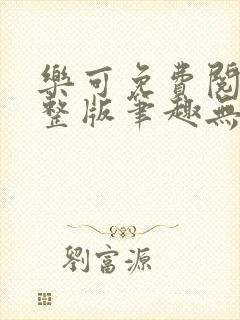 樂可免費閱
整版筆趣無
劉富源